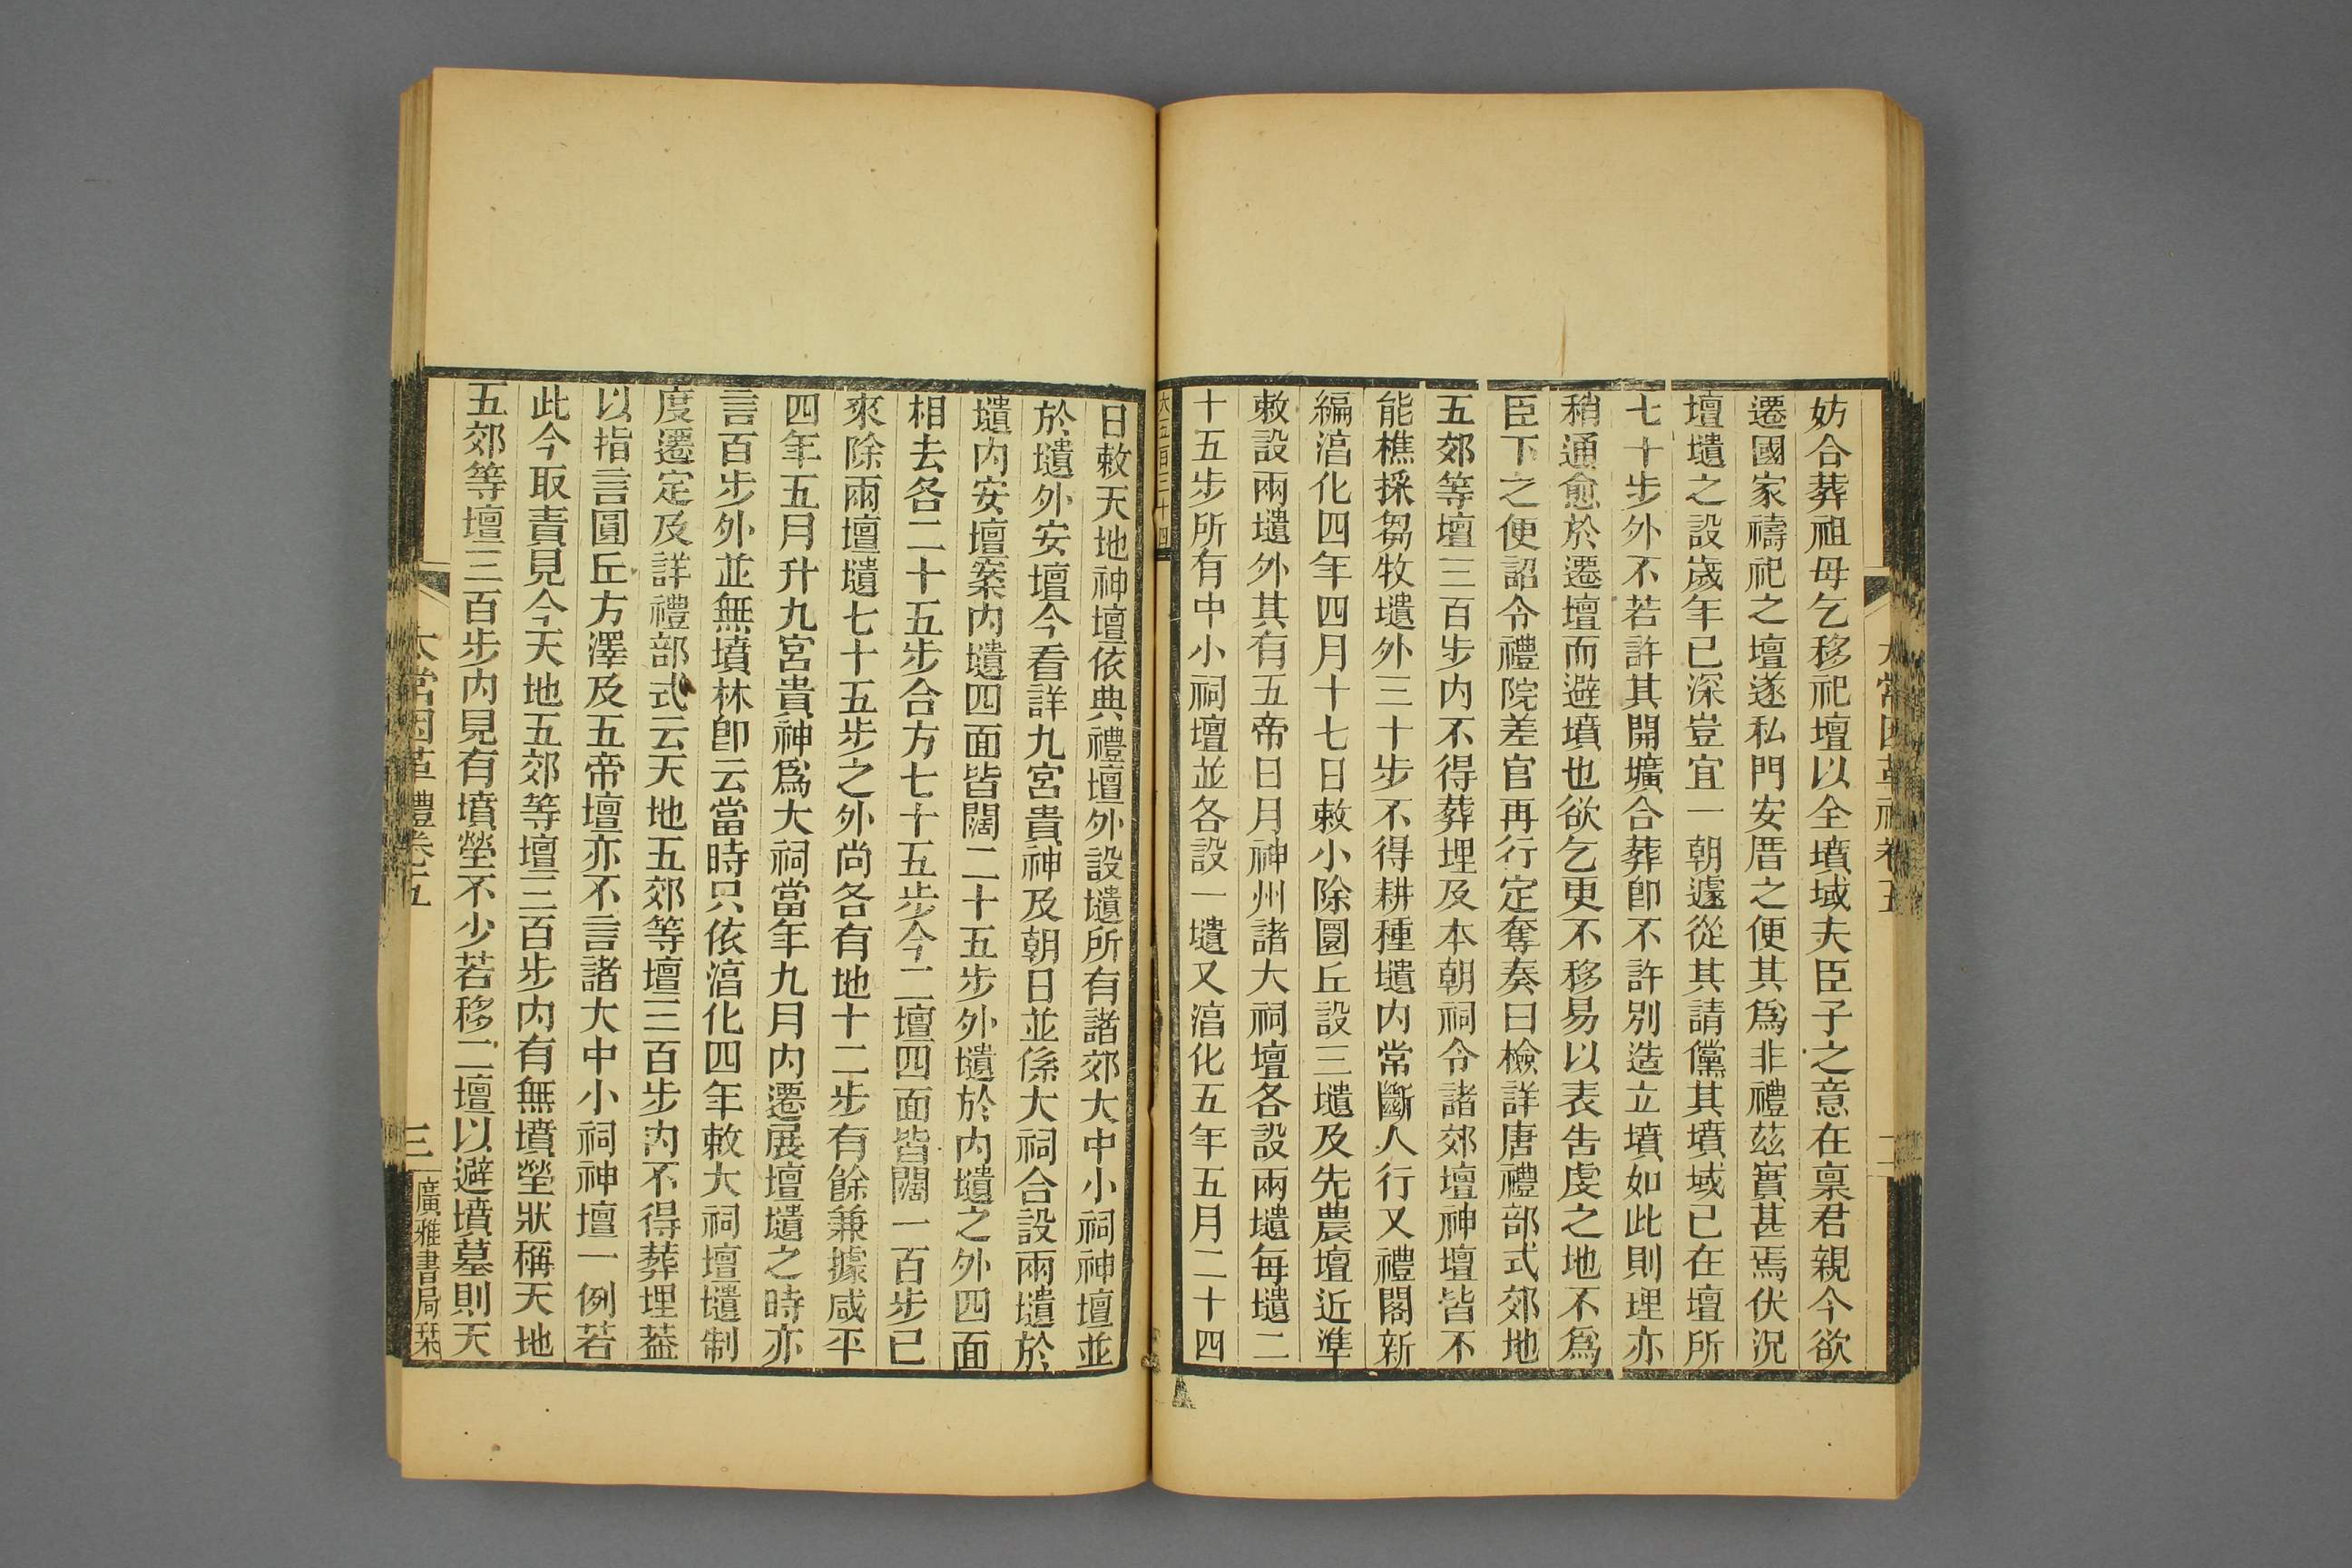 太常因革禮卷五
二
妨合葬祖母乞移祀壇以全墳域夫臣子之意在稟君親今欲
遷國家禱祀之壇遂私門安厝之便其爲非禮茲實甚焉伏況
壇壝之設歲年已深豈宜一朝遽從其請儻其墳域已在壇所
七十步外不若許其開壙合葬卽不許別造立墳如此則理亦
稍通愈於遷壇而避墳也欲乞更不移易以表吿虔之地不爲
臣下之便詔令禮院差官再行定奪奏曰檢詳唐禮部式郊地
五郊等壇三百步内不得葬埋及本朝祠令諸郊壇神壇皆不
能樵採芻牧壝外三十步不得耕種壝内常斷人行又禮閣新
編湻化四年四月十七日敕小除圜丘設三壝及先農壇近準
敕設兩壝外其有五帝日月神州諸大祠壇各設兩壝每壝二
十五步所有中小祠壇並各設一壝又湻化五年五月二十四
大五百三十四
日敕天地神壇依典禮壇外設壝所有諸郊大中小祠神壇並
於壝外安壇今看詳九宮貴神及朝日並係大祠合設兩壝於
壝内安壇案内壝四面皆闊二十五步外壝於内壝之外四面
相去各二十五步合方七十五步今二壇四面皆闊一百步已
來除兩壇壝七十五步之外尚各有地十二步有餘兼據咸平
四年五月升九宮貴神爲大祠當年九月内遷展壇壝之時亦
言百步外並無墳林卽云當時只依湻化四年敕大祠壇壝制
度遷定及詳禮部式云天地五郊等壇三百步内不得葬埋葢
以指言圓丘方澤及五帝壇亦不言諸大中小祠神壇一例若
此今取責見今天地五郊等壇三百步内有無墳塋狀稱天地
五郊等壇三百步内見有墳塋不少若移二壇以避墳墓則天
太常因革禮卷五
三
廣雅書局栞